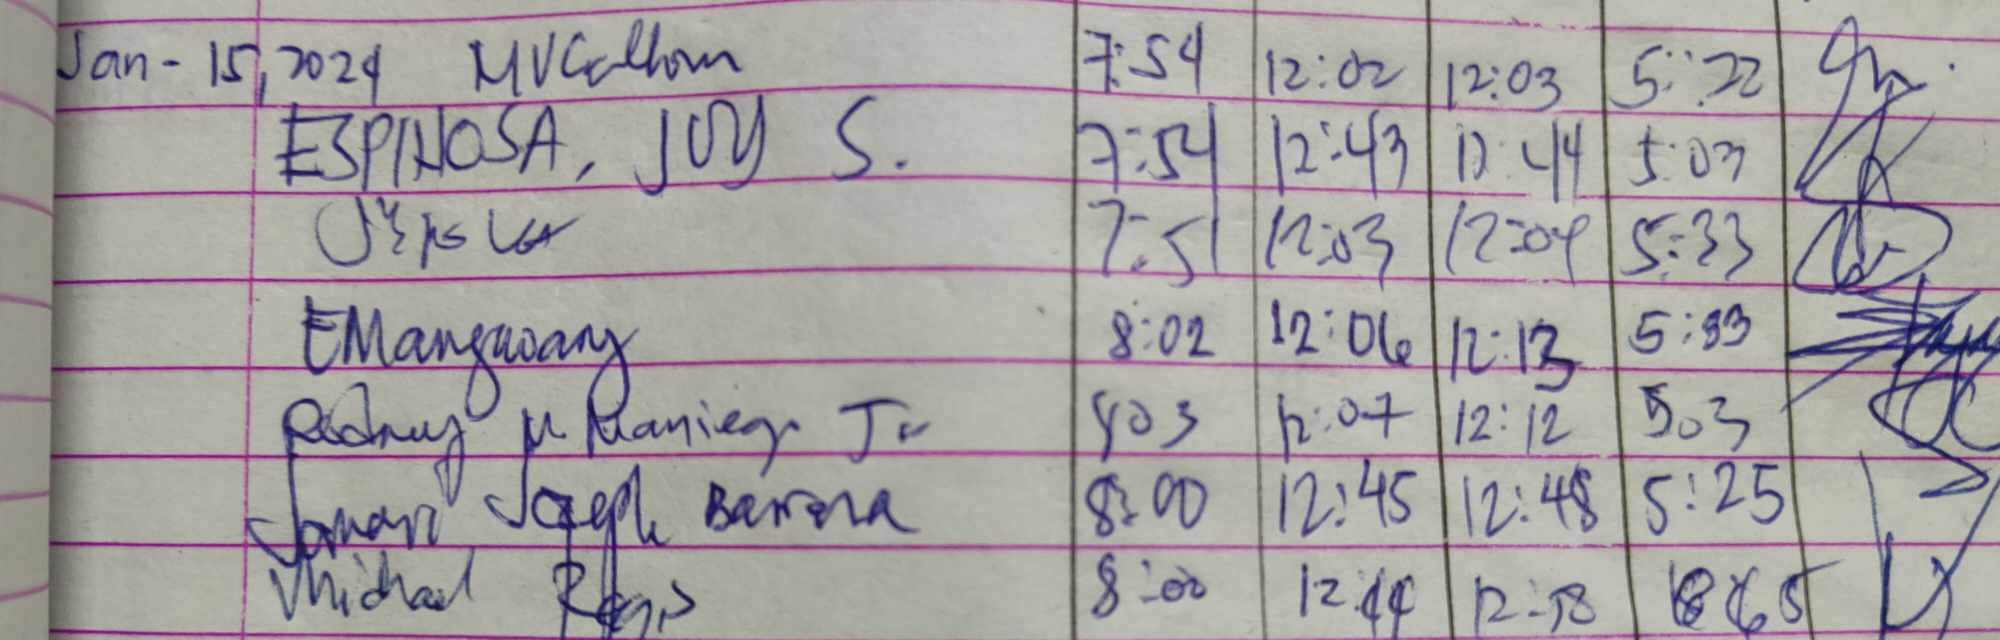 Jan - 15, 2024 MVCalhoun 7:54 12:02 12:03 5:22
ESPINOSA, JOY S. 7:54 12:43 12:44 5:03
7:51 12:03 12:04 5:33
EMangwang 8:02 12:06 12:13 5:33
Rodney M Maniego Jr 803 12:07 12:12 503
Joseph Barrera 8:00 12:45 12:48 5:25
Michael 8:00 12:44 12:58